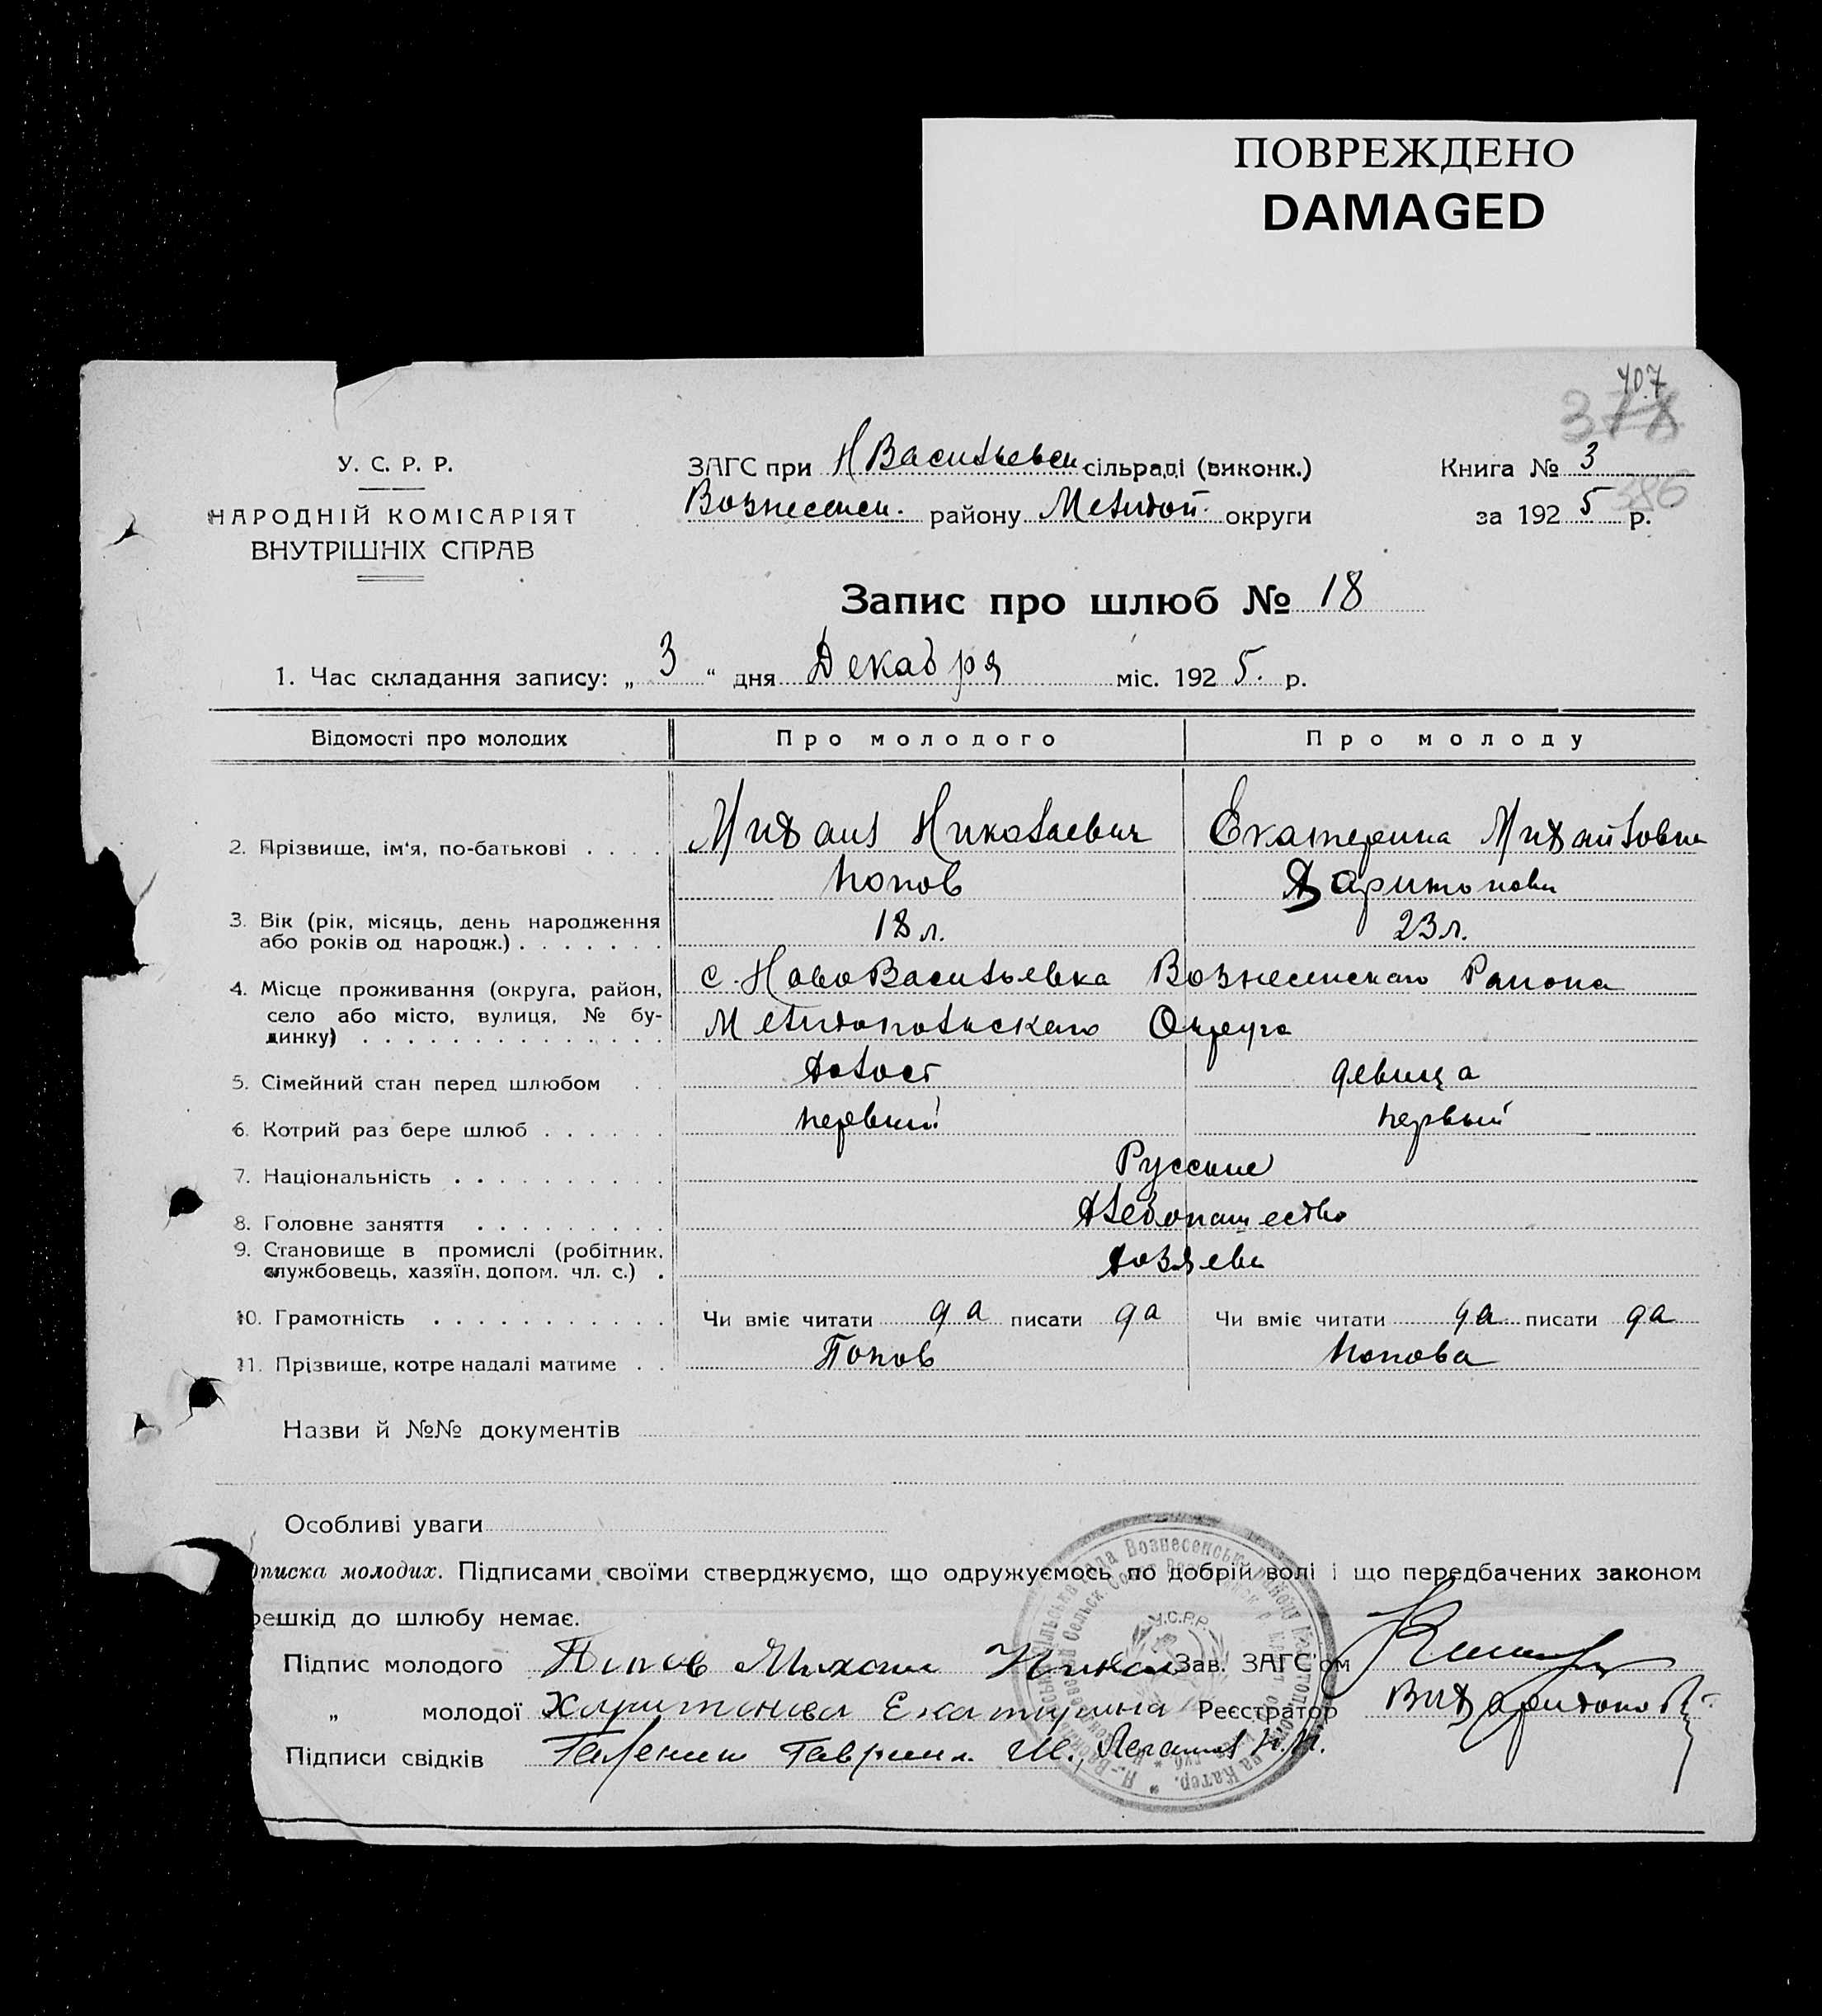 ПОВРЕЖДЕНО
DAMAGED
407
378
386
У. С. Р. Р.
НАРОДНІЙ КОМІСАРІЯТ
ВНУТРІШНІХ СПРАВ
ЗАГС при НВасильевск сільраді (виконк.)
Вознесенск. району Мелитоп. округи
Книга № 3
за 1925 р.
Запис про шлюб № 18
1. Час складання запису: „ 3 “ дня Декабря міс. 1925. р.
Відомості про молодих Про молодого Про молоду
2. Прізвище, ім'я, по-батькові . . . . Михаил Николаевич Екатерина Михайловна
Попов Харитонова
3. Вік (рік, місяць, день народження
або років од народж.) . . . . . . . 18 л. 23 л.
4. Місце проживання (округа, район,
село або місто, вулиця, № бу-
динку) . . . . . . . . . . . . . .
с. НовоВасильевка Вознесенскаго Района
Мелитопольскаго Округа
5. Сімейний стан перед шлюбом . . холост девица
6. Котрий раз бере шлюб . . . . . . первый первый
7. Національність . . . . . . . . . . Русские
8. Головне заняття . . . . . . . . . Хлебопашество
9. Становище в промислі (робітник,
службовець, хазяїн, допом. чл. с.) . хозяева
10. Грамотність . . . . . . . . . . . Чи вміє читати да писати да Чи вміє читати да писати да
11. Прізвище, котре надалі матиме . . Попов Попова
Назви й №№ документів
Особливі уваги
дписка молодих. Підписами своїми стверджуємо, що одружуємось по добрій волі і що передбачених законом
решкід до шлюбу немає.
Підпис молодого Попов Михаил Никол Зав. ЗАГС'ом
„ молодої Харитонова Екатерина Реєстратор ВИХаритонов
Підписи свідків Гавриил
У.С.Р.Р.